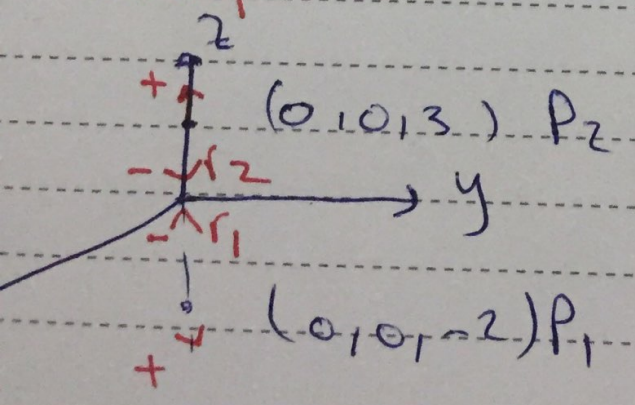 z
+ (0,0,3) P2
- r2
y
- r1
(0,0,-2) P1
+